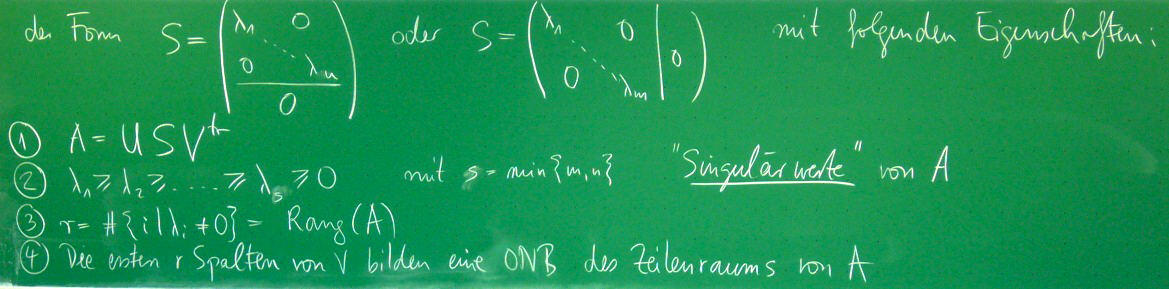 der Form S = ( λ₁ 0 ⋱ 0 λₙ / 0 ) oder S = ( λ₁ 0 ⋱ 0 λₘ | 0 ) mit folgenden Eigenschaften:
① A = U S V^tr
② λ₁ ≥ λ₂ ≥ ..... ≥ λₛ ≥ 0 mit s = min{m,n} "Singulärwerte" von A
③ r = #{i | λᵢ ≠ 0} = Rang(A)
④ Die ersten r Spalten von V bilden eine ONB des Zeilenraums von A